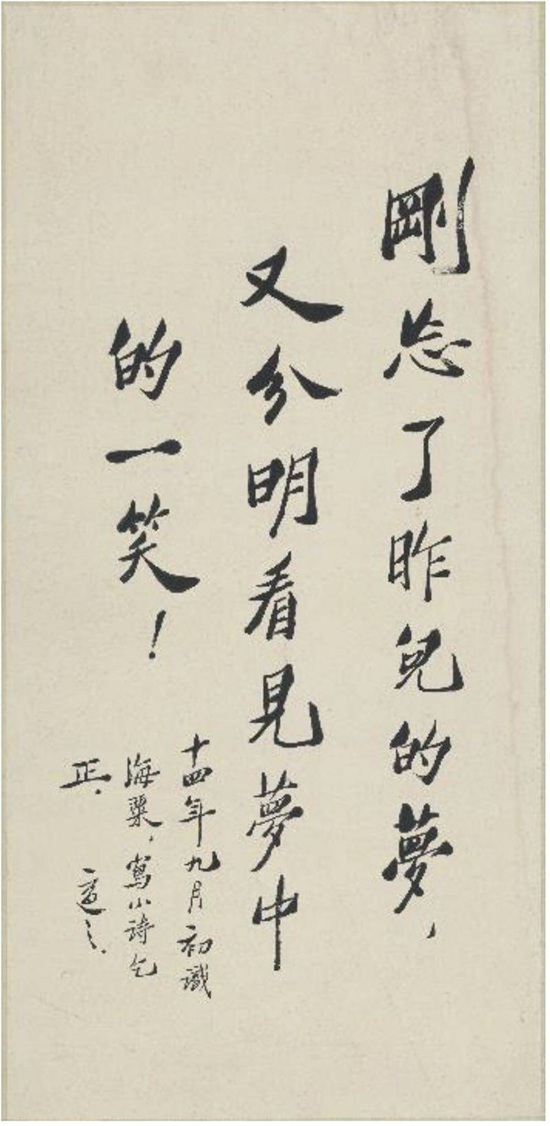 剛忘了昨兒的夢，
又分明看見夢中
的一笑！
十四年九月初識
海粟，寫小詩乞
正．
適之．